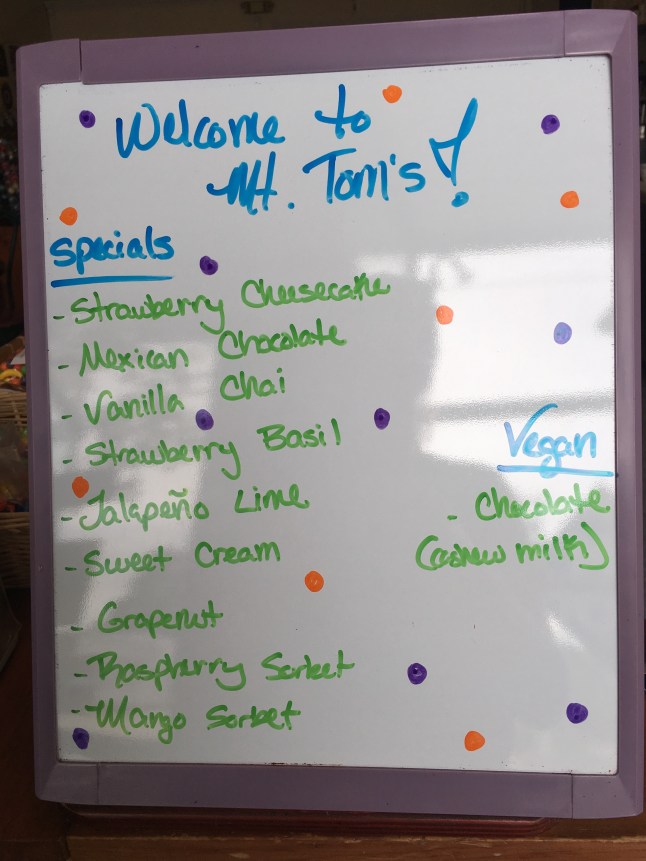 Welcome to
Mt. Tom's!
Specials
- Strawberry Cheesecake
- Mexican Chocolate
- Vanilla Chai
- Strawberry Basil
- Jalapeño Lime
- Sweet Cream
- Grapenut
- Raspberry Sorbet
- Mango Sorbet
Vegan
- Chocolate
(cashew milk)